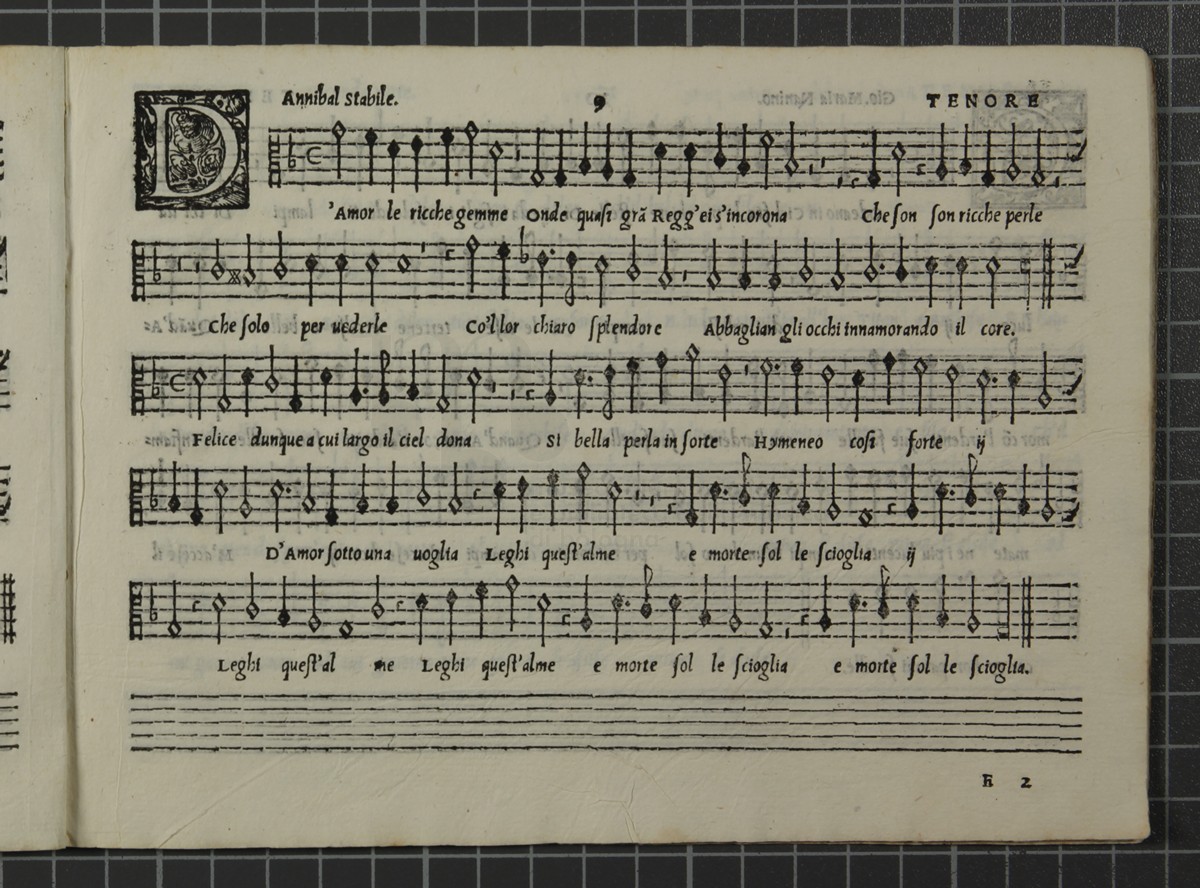 Annibal stabile. 9 TENORE
D'Amor le ricche gemme Onde quaſi grã Regg'ei s'incorona Che ſon ſon ricche perle
Che ſolo per uederle Co'l lor chiaro ſplendore Abbaglian gli occhi innamorando il core.
Felice dunque a cui largo il ciel dona Si bella perla in ſorte Hymeneo coſi forte ij
D'Amor ſotto una uoglia Leghi queſt'alme e morte ſol le ſcioglia ij
Leghi queſt'al me Leghi queſt'alme e morte ſol le ſcioglia e morte ſol le ſcioglia.
2